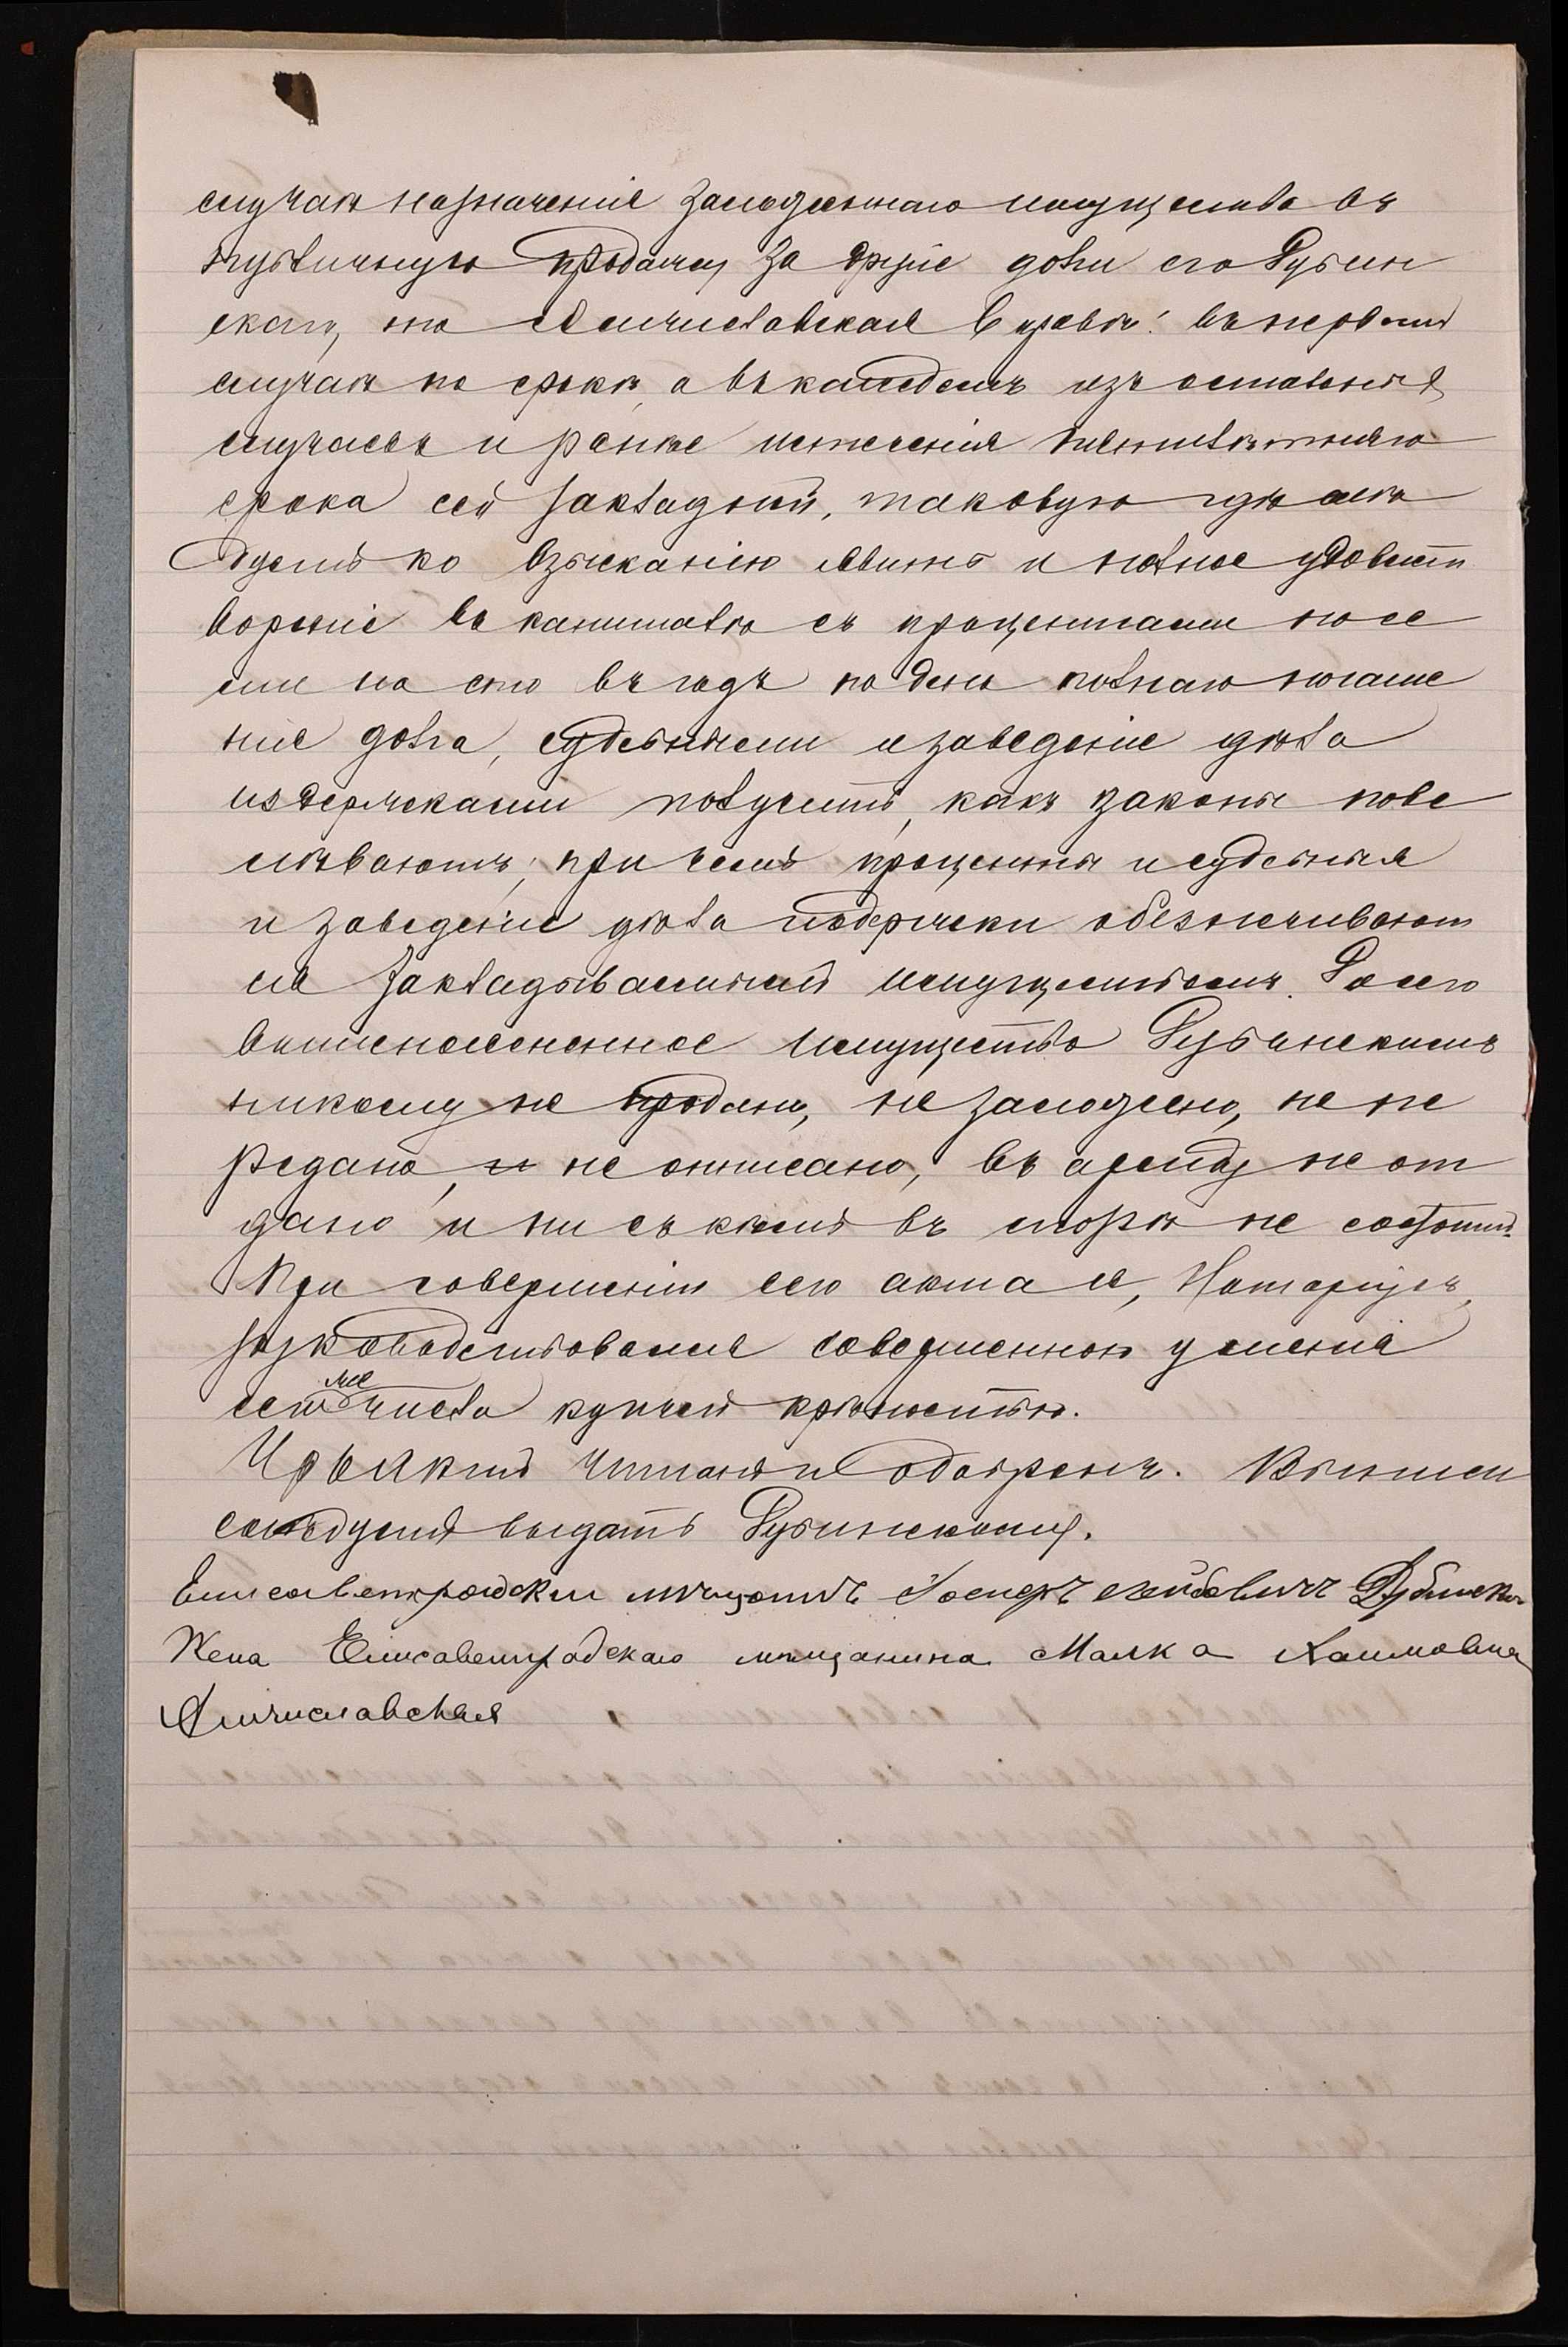 случаѣ назначенія заложеннаго имущества въ
публичную продажу за другіе долги его Рубин
скаго, то Амчиславская вправѣ: въ первомъ
случаѣ по срокѣ, а въ каждомъ изъ остальныхъ
случаевъ и ранѣе истеченія пятилѣтняго
срока сей закладной, таковую гдѣ
будетъ ко взысканію явить и полное удовлет
вореніе въ капиталѣ съ процентами
на сто въ годъ по день полнаго погаше
нія долга, судебными и за веденіе дѣла
издержками получить, какъ законы пове
лѣваютъ; при чемъ проценты и судебныя
и за веденіе дѣла издержки обезпечивают
ся закладываемымъ имуществомъ. До сего
вышеписанное имущество Рубинскимъ
никому не продано, не заложено, не пе
редано, и не описано, въ аренду не от
дано и ни съ кѣмъ въ спорѣ не состоитъ.
При совершеніи сего акта я, Нотаріусъ,
руководствовался совершенною у меня
сего же числа купчей крѣпостью.
Проектъ читанъ и одобренъ. Выпись
слѣдуетъ выдать Рубинскому.
Елисаветградскій мѣщанинъ Рубинскій
Жена Елисаветградскаго мѣщанина Малка Хаимовна
Амчиславская